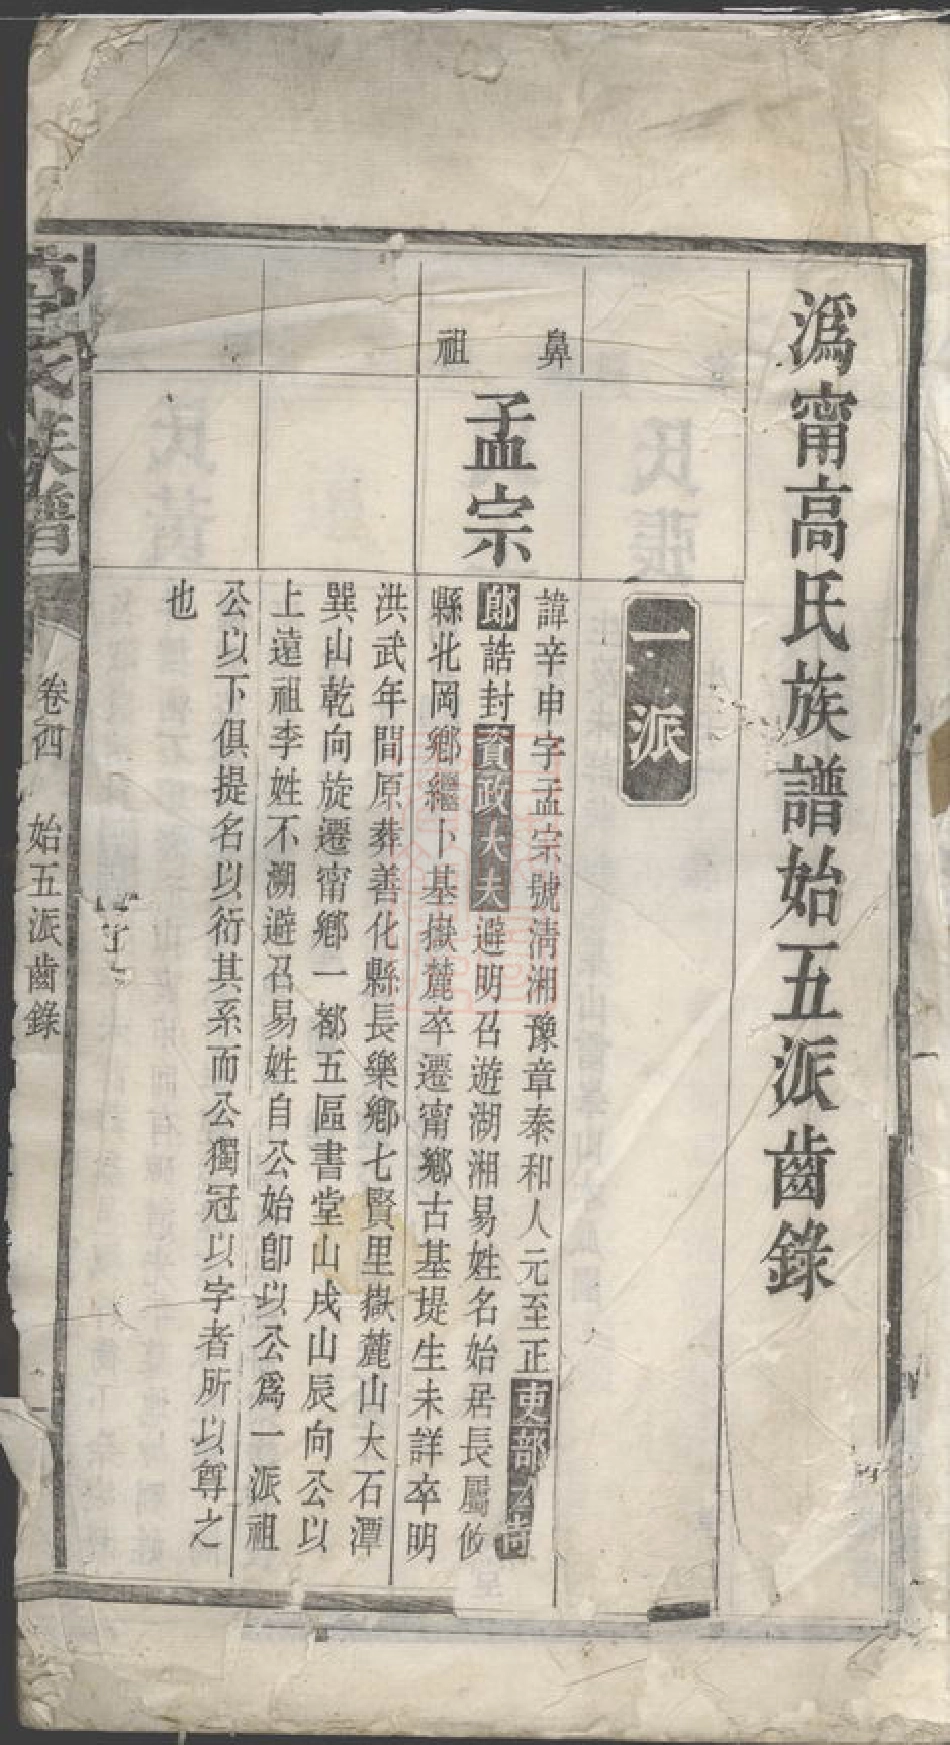 溈甯高氏族譜始五派齒錄
一派
鼻祖
孟宗
諱辛申字孟宗號淸湘豫章泰和人元至正吏部尚
郎誥封資政大夫避明召遊湖湘易姓名始居長屬攸
縣北岡鄉繼卜基嶽麓卒遷甯鄉古基堤生未詳卒明
洪武年間原葬善化縣長樂鄉七賢里嶽麓山大石潭
巽山乾向旋遷甯鄉一都五區書堂山戌山辰向公以
上遠祖李姓不溯避召易姓自公始卽以公爲一派祖
公以下俱提名以衍其系而公獨冠以字者所以尊之
也
高氏族譜
卷四
始五派齒錄